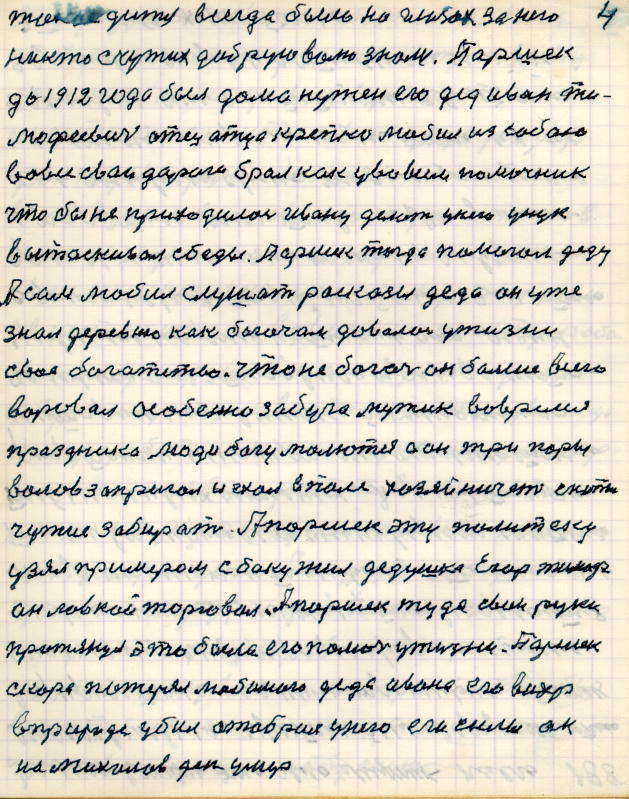 дитя всегда было на глазах за него 4
никто с чужих добрую волю знал. Паршек
до 1912 года был дома нужен его дед иван ти-
мофеевич отец атца крепко любил из собою
вовсе сваи дараги брал как уво помочник
что бы не приходилос ивану делат унего унук
вытаскивал сбеды. Паршек тогда помогал деду
А сам любил слушат расказы деда он уже
знал деревню как богачам довалос ужизни
свое богатство. что не богач он больше всего
воровал особенно забуга мужик вовремя
праздника люди богу молются а он три пары
валов запрягал и ехал вполе хозяйничет
чужие забират. А паршек эту политеку
узял примером сбоку жил дедушка Егор
он ловкой торговал. А паршек туда свои руки
протянул это была его помоч ужизни. Паршек
скора потерял любимого деда ивана его вихр
вприроде убил отобрал унего его силы ак
на михолов ден умер